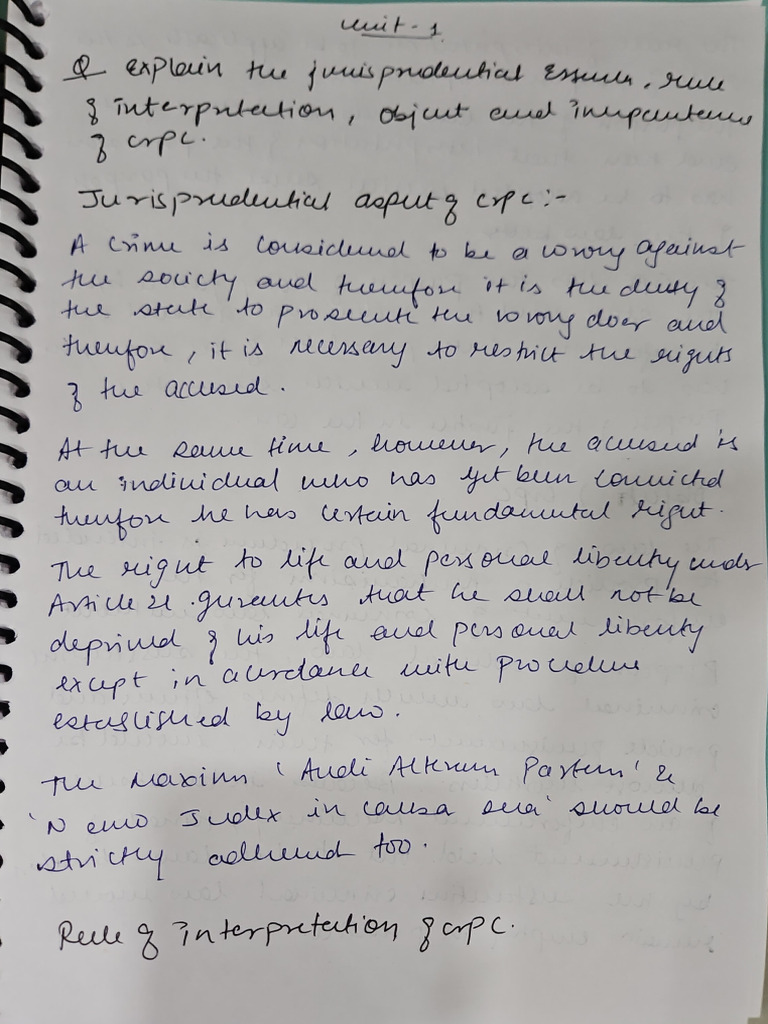 Unit - 1
Q explain the jurisprudential Essence, rule
of interpretation, object and importance
of crpc.
Jurisprudential aspect of crpc :-
A crime is considered to be a wrong against
the society and therefore it is the duty of
the state to prosecute the wrong doer and
therefore, it is necessary to restrict the rights
of the accused.
At the same time, however, the accused is
an individual who has yet been convicted
therefore he has certain fundamental right.
The right to life and personal liberty under
Article 21 gurantes that he shall not be
deprived of his life and personal liberty
except in accordance with procedure
established by law.
The Maxim 'Audi Alterum Partem' &
'Nemo Judex in causa sua' should be
strictly adhered too.
Rule of interpretation of crpc.